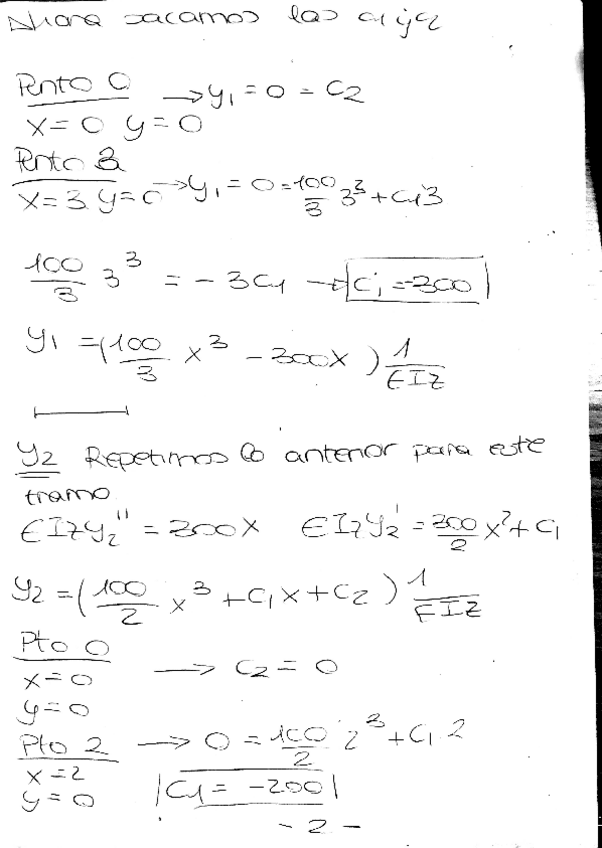 Ahora sacamos las c1 y c2
Pnto 0 → y1 = 0 = C2
x=0 y=0
Pnto 3
x=3 y=0 → y1 = 0 = 100/3 3^3 + C1 3
100/3 3^3 = -3C1 → C1 = -300
y1 = (100/3 x^3 - 300x) 1/EIz
y2 Repetimos lo anterior para este
tramo
EIzy2'' = 300x EIzy2' = 300/2 x^2 + C1
y2 = (100/2 x^3 + C1x + C2) 1/EIz
Pto 0
x=0 → C2 = 0
y=0
Pto 2 → 0 = 100/2 2^3 + C1 2
x=2
y=0 C1 = -200
- 2 -